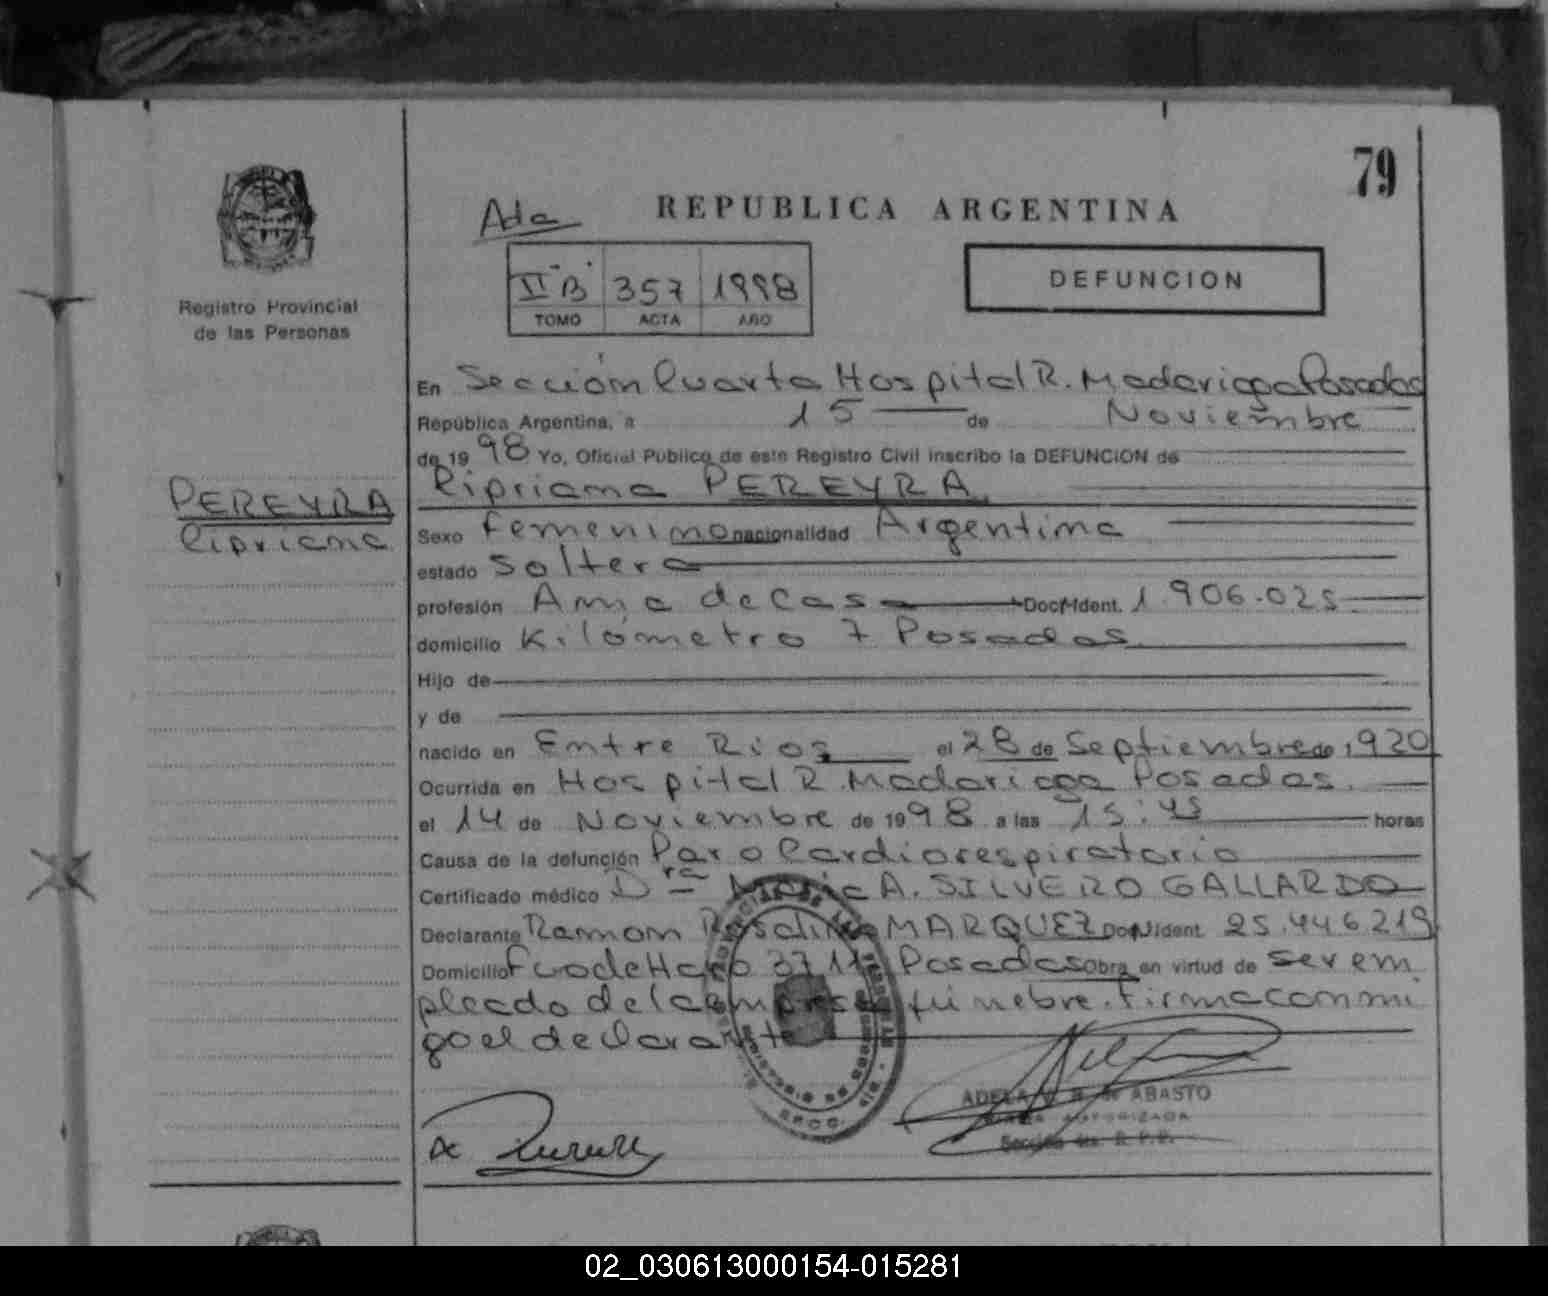 79
Ada
REPUBLICA ARGENTINA
IIº"B" 357 1998
TOMO ACTA AÑO
DEFUNCION
Registro Provincial
de las Personas
En Sección Cuarta Hospital R. Madariaga Posadas
República Argentina, a 15 de Noviembre
de 19 98 Yo, Oficial Público de este Registro Civil inscribo la DEFUNCION de
PEREYRA
Cipriana
Cipriana PEREYRA
Sexo Femenino nacionalidad Argentina
estado Soltera
profesión Ama de Casa Doc. Ident. 1.906.025
domicilio Kilómetro 7 Posadas
Hijo de
y de
nacido en Entre Rios el 28 de Septiembre de 1920
Ocurrida en Hospital R. Madariaga Posadas.
el 14 de Noviembre de 1998 a las 15:45 horas
Causa de la defunción Paro Cardiorespiratorio
Certificado médico Dra Maria A. SILVERO GALLARDO
Declarante Ramon MARQUEZ Doc. Ident. 25.446.219
Domicilio 3711 Posadas obra en virtud de ser em
pleado de la empresa fúnebre. Firma conmi
go el declarante
ADELA de ABASTO
AUTORIZADA
02_030613000154-015281